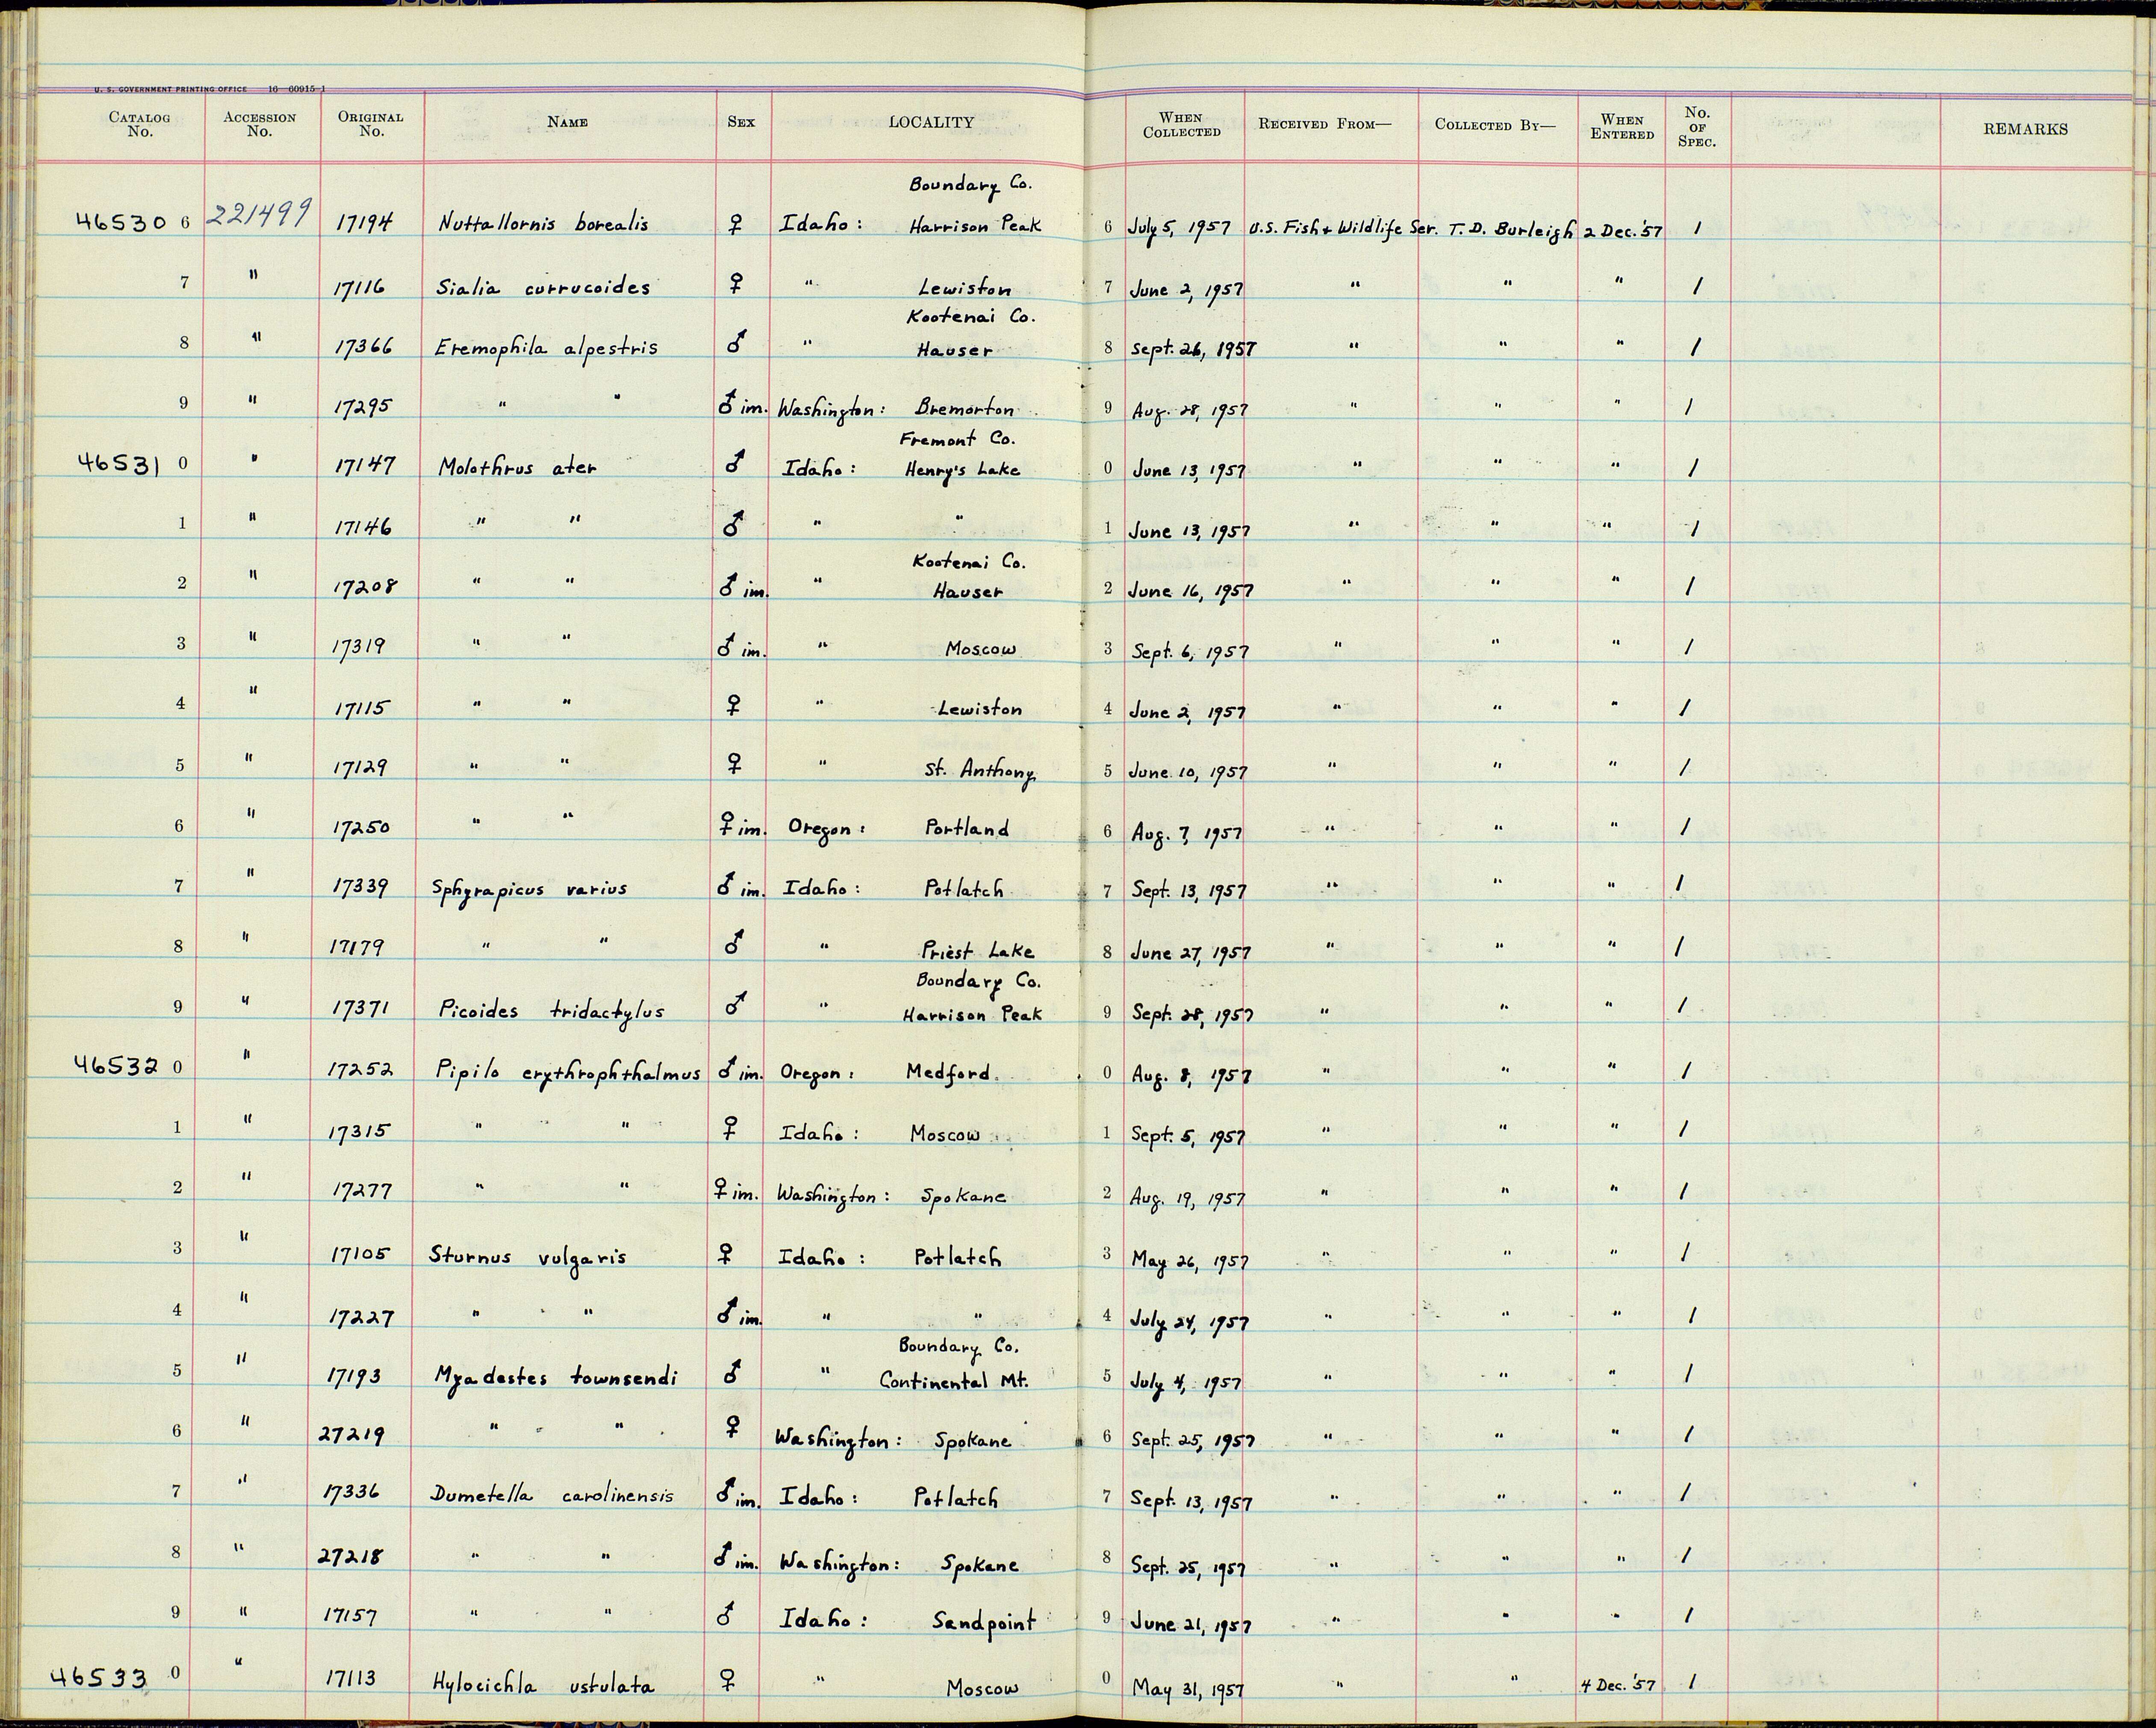 U. S. GOVERNMENT PRINTING OFFICE 16—60915-1
CATALOG No. ACCESSION No. ORIGINAL No. NAME SEX LOCALITY WHEN COLLECTED RECEIVED FROM— COLLECTED BY— WHEN ENTERED No. OF SPEC. REMARKS
Boundary Co.
46530 6 221499 17194 Nuttallornis borealis ♀ Idaho: Harrison Peak 6 July 5, 1957 U.S. Fish & Wildlife Ser. T. D. Burleigh 2 Dec. '57 1
7 " 17116 Sialia currucoides ♀ " Lewiston 7 June 2, 1957 " " " 1
Kootenai Co.
8 " 17366 Eremophila alpestris ♂ " Hauser 8 Sept. 26, 1957 " " " 1
9 " 17295 " " ♂ im. Washington: Bremerton 9 Aug. 28, 1957 " " " 1
Fremont Co.
46531 0 " 17147 Molothrus ater ♂ Idaho: Henry's Lake 0 June 13, 1957 " " " 1
1 " 17146 " " ♂ " " 1 June 13, 1957 " " " 1
Kootenai Co.
2 " 17208 " " ♂ im. " Hauser 2 June 16, 1957 " " " 1
3 " 17319 " " ♂ im. " Moscow 3 Sept. 6, 1957 " " " 1
4 " 17115 " " ♀ " Lewiston 4 June 2, 1957 " " " 1
5 " 17129 " " ♀ " St. Anthony 5 June 10, 1957 " " " 1
6 " 17250 " " ♀ im. Oregon: Portland 6 Aug. 7, 1957 " " " 1
7 " 17339 Sphyrapicus varius ♂ im. Idaho: Potlatch 7 Sept. 13, 1957 " " " 1
8 " 17179 " " ♂ " Priest Lake 8 June 27, 1957 " " " 1
Boundary Co.
9 " 17371 Picoides tridactylus ♂ " Harrison Peak 9 Sept. 28, 1957 " " " 1
46532 0 " 17252 Pipilo erythrophthalmus ♂ im. Oregon: Medford 0 Aug. 8, 1957 " " " 1
1 " 17315 " " ♀ Idaho: Moscow 1 Sept. 5, 1957 " " " 1
2 " 17277 " " ♀ im. Washington: Spokane 2 Aug. 19, 1957 " " " 1
3 " 17105 Sturnus vulgaris ♀ Idaho: Potlatch 3 May 26, 1957 " " " 1
4 " 17227 " " ♂ im. " " 4 July 24, 1957 " " " 1
Boundary Co.
5 " 17193 Myadestes townsendi ♂ " Continental Mt. 5 July 4, 1957 " " " 1
6 " 27219 " " ♀ Washington: Spokane 6 Sept. 25, 1957 " " " 1
7 " 17336 Dumetella carolinensis ♂ im. Idaho: Potlatch 7 Sept. 13, 1957 " " " 1
8 " 27218 " " ♂ im. Washington: Spokane 8 Sept. 25, 1957 " " " 1
9 " 17157 " " ♂ Idaho: Sandpoint 9 June 21, 1957 " " " 1
46533 0 " 17113 Hylocichla ustulata ♀ " Moscow 0 May 31, 1957 " " 4 Dec. '57 1